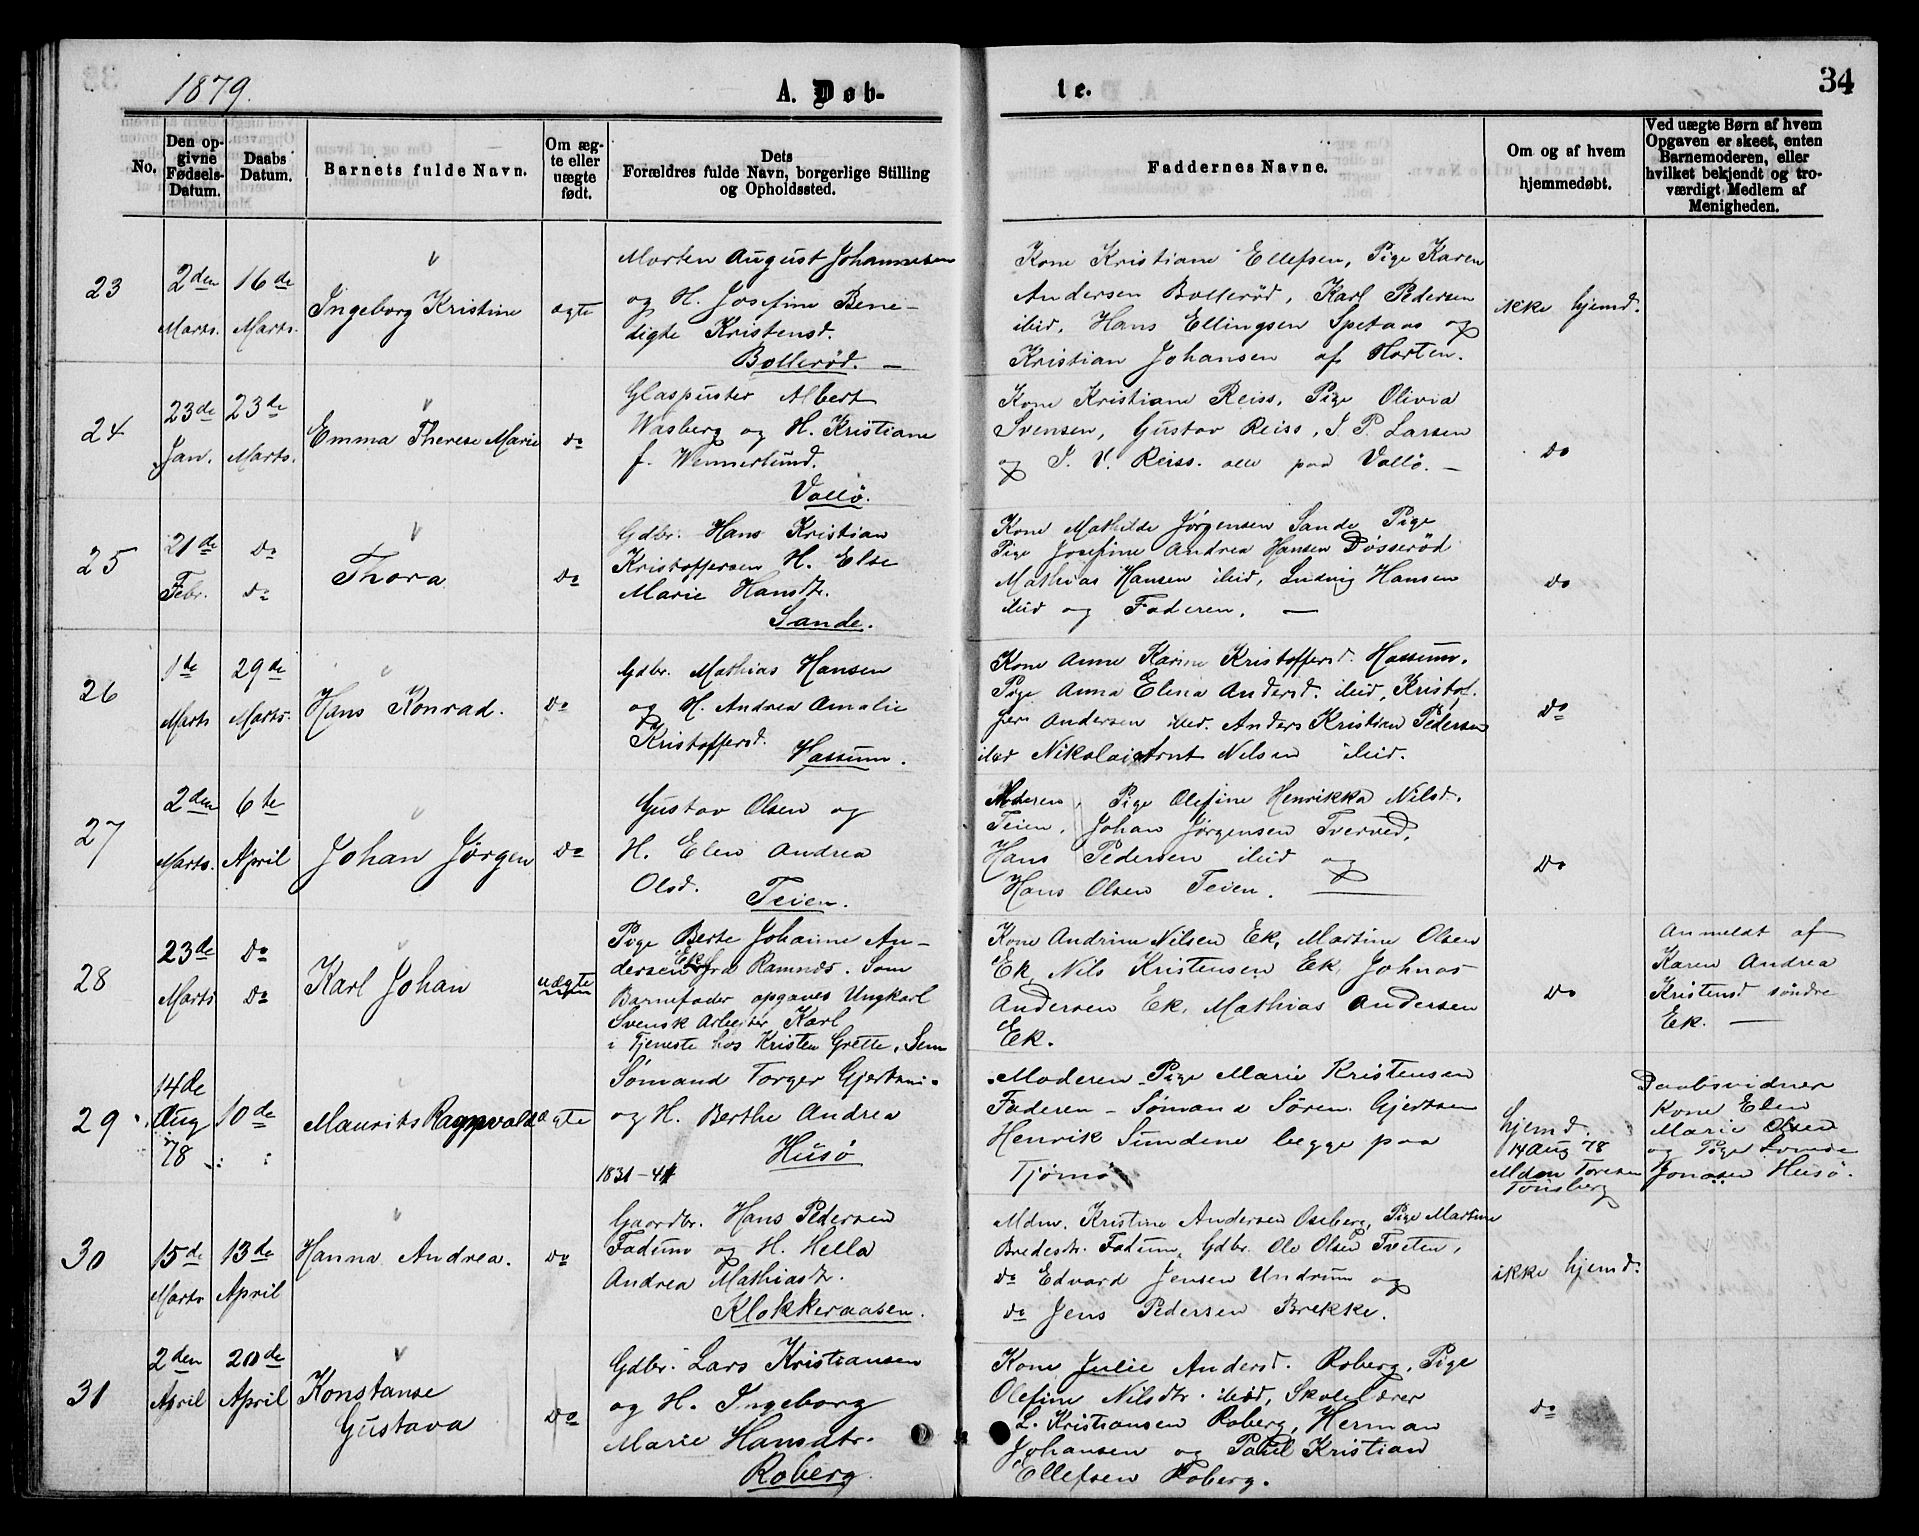 1879.
A. Døb-
te.
34
No.
Den op-
givne
Fødsels-
Datum.
Daabs
Datum.
Barnets fulde Navn.
Om æg-
te eller
uægte
født.
Dets
Forældres fulde Navn, borgerlige Stilling
og Opholdssted.
Faddernes Navne.
Om og af hvem
hjemmedøbt.
Ved uægte Børn af hvem
Opgaven er skeet, enten
Barnemoderen, eller
hvilket bekjendt og tro-
værdigt Medlem af
Menigheden.
23
2den
Marts.
16de
Marts.
Ingeborg Kristine
ægte
Morten August Johannesen
og H. Josefine Bene-
digte Kristensd.
Bollerød. —
Kone Kristiane Ellefsen, Pige Karen
Andersen Bollerød, Karl Pedersen
ibid, Hans Ellingsen Spetaas og
Kristian Johansen af Horten.
ikke hjemd.
24
23de
Jan.
23de
Marts.
Emma Therese Marie
do
Glaspuster Albert
Wasberg og H. Kristiane
f. Wennerlund.
Vallö.
Kone Kristiane Reiss, Pige Olivia
Svensen, Gustav Reiss, S. P. Larsen
og J. V. Reiss. alle paa Vallö. —
do
25
21de
Febr.
do
do
Thora
do
Gdbr. Hans Kristian
Kristoffersen H. Else
Marie Hansdtr.
Sande.
Kone Mathilde Jørgensen Sande Pige
Pige Josefine Andrea Hansen Døsserød
Mathias Hansen ibid, Ludvig Hansen
ibid og Faderen. —
do
26
1de
Marts
29de
Marts.
Hans Konrad.
do
Gdbr. Mathias Hansen
og H. Andrea Amalie
Kristoffersd.
Hassum.
Kone Anne Karine Kristoffersd. Hassum.
Pige Anna Elena Andersd. ibid, Kristof-
fer Andersen ibid. Anders Kristian Pedersen
ibid Nikolai Arnt Nilsen ibid.
do
27
2den
Marts.
6te
April
Johan Jørgen
do
Gustav Olsen og
H. Elen Andrea
Olsd.
Teien.
Moderen, Pige Olefine Henrikka Nilsd.
Teien, Johan Jørgensen Tverved,
Hans Pedersen ibid og
Hans Olsen Teien. —
do
28
23de
Marts
do
do
Karl Johan
uægte
Pige Berte Johanne An-
dersen Ek fra Ramnæs. Som
Barnefader opgaves Ungkarl
Svensk Arbejder Karl
i Tjeneste hos Kristen Grette, Sem
Kone Andrine Nilsen Ek, Martine Olsen
Ek, Nils Kristensen Ek, Johnas
Andersen Ek, Mathias Andersen
Ek.
do
Anmeldt af
Karen Andrea
Kristensd søndre
Ek. —
29
14de
Aug
78
10de
Maurits Ragnvald
ægte
Sømand Torger Gjertsen
og H. Berthe Andrea
Husø
1831-41
Moderen, Pige Marie Kristensen
Faderen - Sømand Søren Gjertsen
Henrik Sundene begge paa
Tjømø
hjemd.
14 Aug 78
Mdm Toresen
Tønsberg
Daabsvidner
Kone Elen
Marie Olsen
og Pige Lovise
Jonasen Husö.
30
15de
Marts
13de
April
Hanna Andrea.
do
Gaardbr. Hans Pedersen
Fadum og H. Hella
Andrea Mathiasdtr.
Klokkeraasen.
Mdm. Kristine Andersen Oseberg, Pige Martine
Bredesdtr. Fadum, Gdbr. Ole Olsen Tveten,
do Edvard Jensen Undrum og
do Jens Pedersen Brekke.
ikke hjemd.
31
2den
April
20de
April
Konstanse
Gustava
do
Gdbr. Lars Kristiansen
og H. Ingeborg
Marie Hansdtr.
Roberg
Kone Julie Andersd. Roberg, Pige
Olefine Nilsdtr. ibid, Skolelærer
L. Kristiansen Roberg, Herman
Johansen og Paul Kristian
Ellefsen Roberg.
do